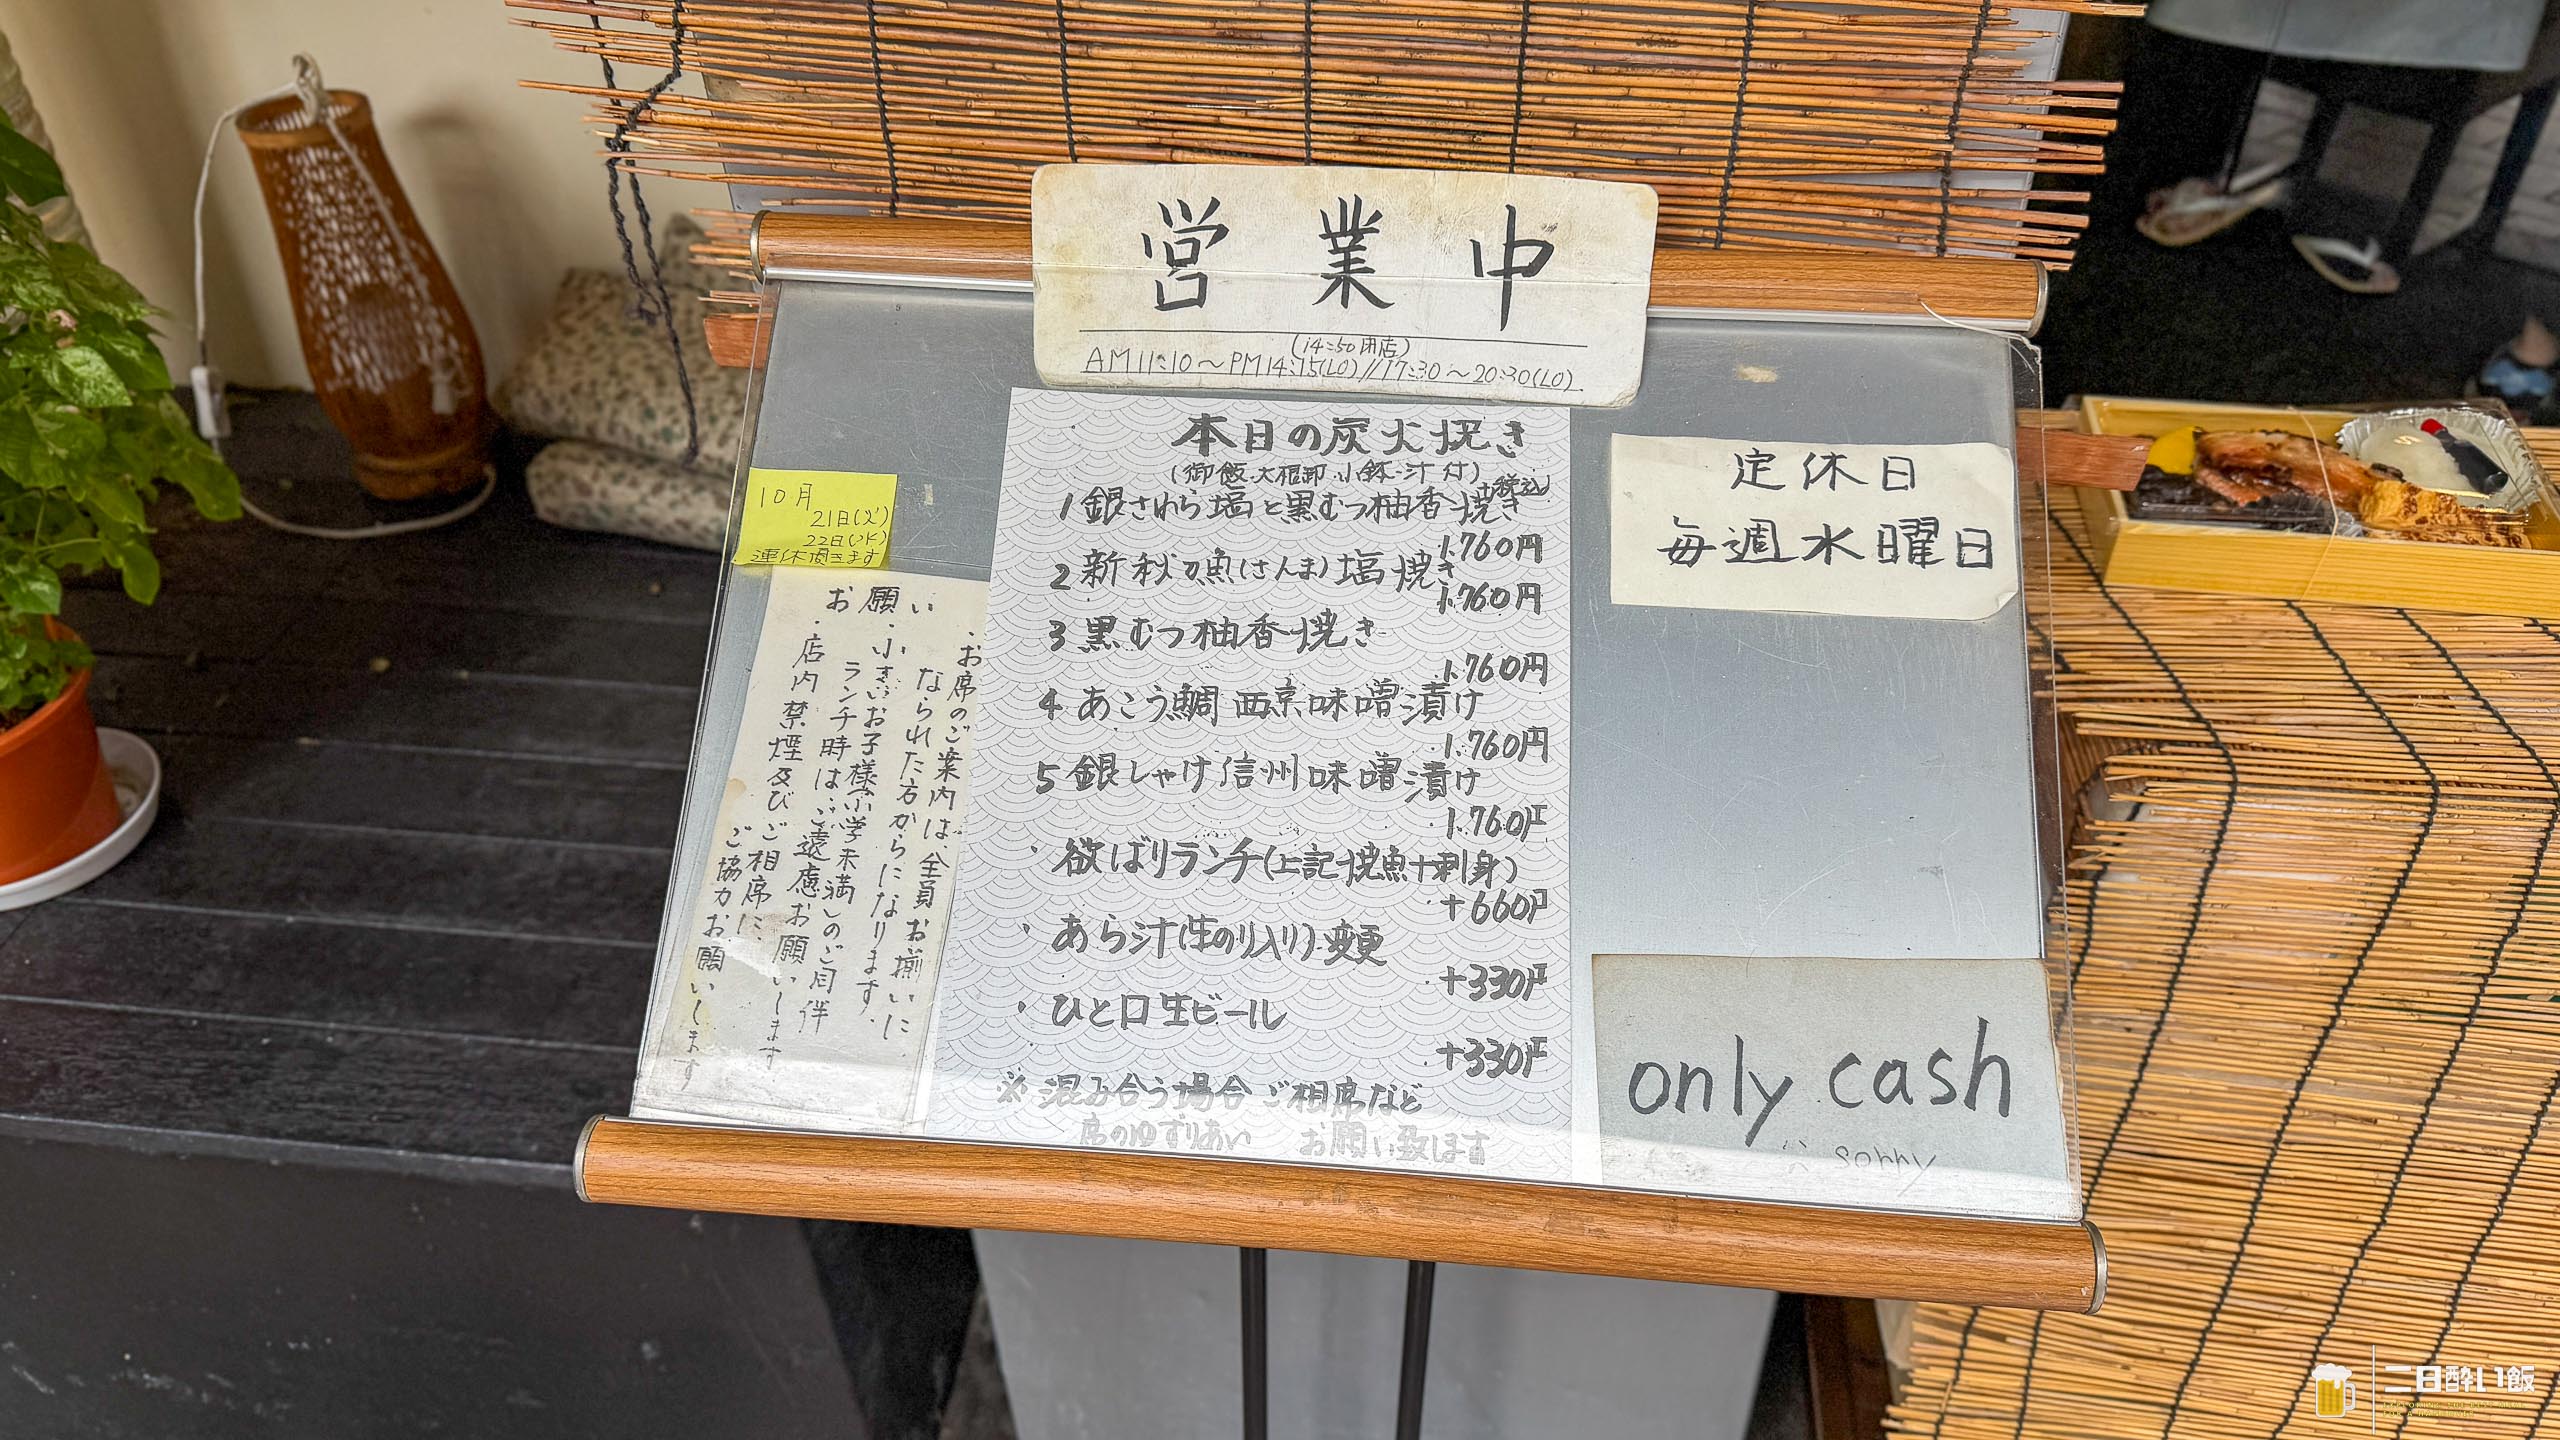 営業中
(14:50閉店)
AM11:10〜PM14:15(LO)//17:30〜20:30(LO)
本日の炭火焼き
(御飯・大根卸・小鉢・汁付)
税込
1 銀さわら塩と黒むつ柚香焼き
1.760円
2 新秋刀魚(さんま)塩焼き
1.760円
3 黒むつ柚香焼き
1.760円
4 あこう鯛西京味噌漬け
1.760円
5 銀しゃけ信州味噌漬け
1.760円
・欲ばりランチ(上記焼魚+刺身)
+660円
・あら汁(生のり入り)変更
+330円
・ひと口生ビール
+330円
※混み合う場合ご相席など
席のゆずりあい お願い致します
10月
21日(火)
22日(水)
連休頂きます
お願い
・お席のご案内は、全員お揃いに
なられた方からになります。
・小さいお子様(小学未満)のご同伴
ランチ時は、ご遠慮お願いします
・店内禁煙及びご相席に、
ご協力お願いします
定休日
毎週水曜日
only cash
sorry
二日酔い飯